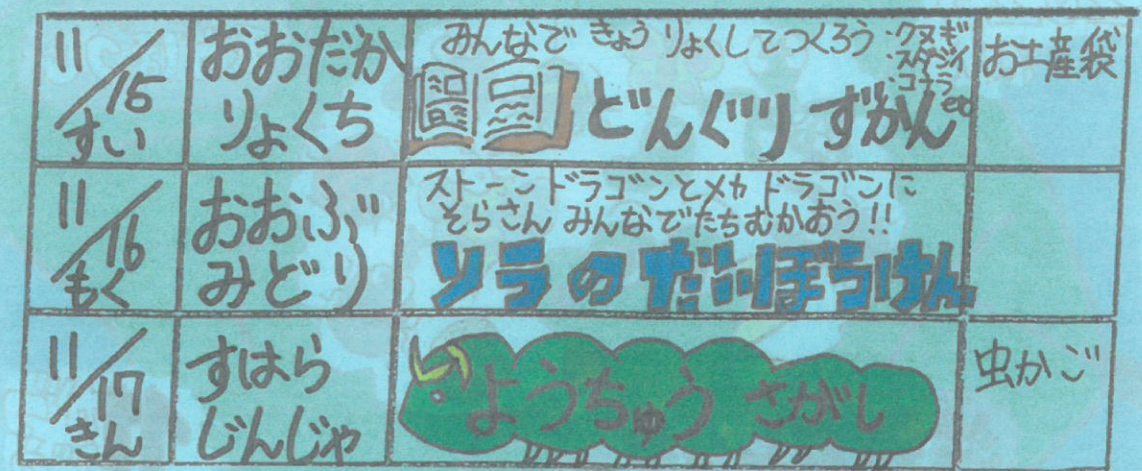 11/15
すい
おおだか
りょくち
みんなで きょうりょくしてつくろう
・クヌギ
・スダジイ
・コナラ
etc
どんぐり ずかん
お土産袋
11/16
もく
おおぶ
みどり
ストーンドラゴンとメカドラゴンに
そらさん みんなでたちむかおう!!
ソラのだいぼうけん
11/17
きん
すはら
じんじゃ
ようちゅう さがし
虫かご